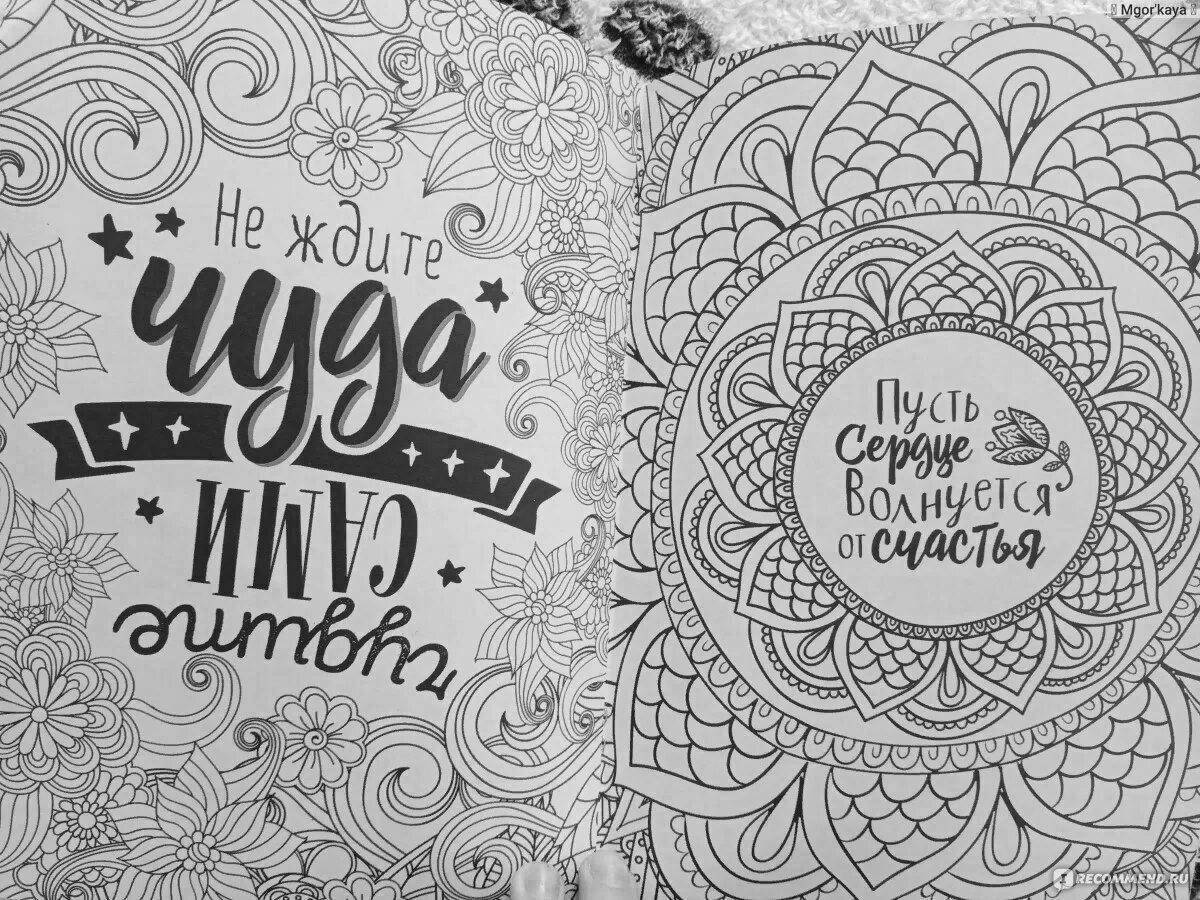 Mgor'kaya
Не ждите
чуда
САМИ
чудите
Пусть
Сердце
Волнуется
от счастья
RECOMMEND.RU